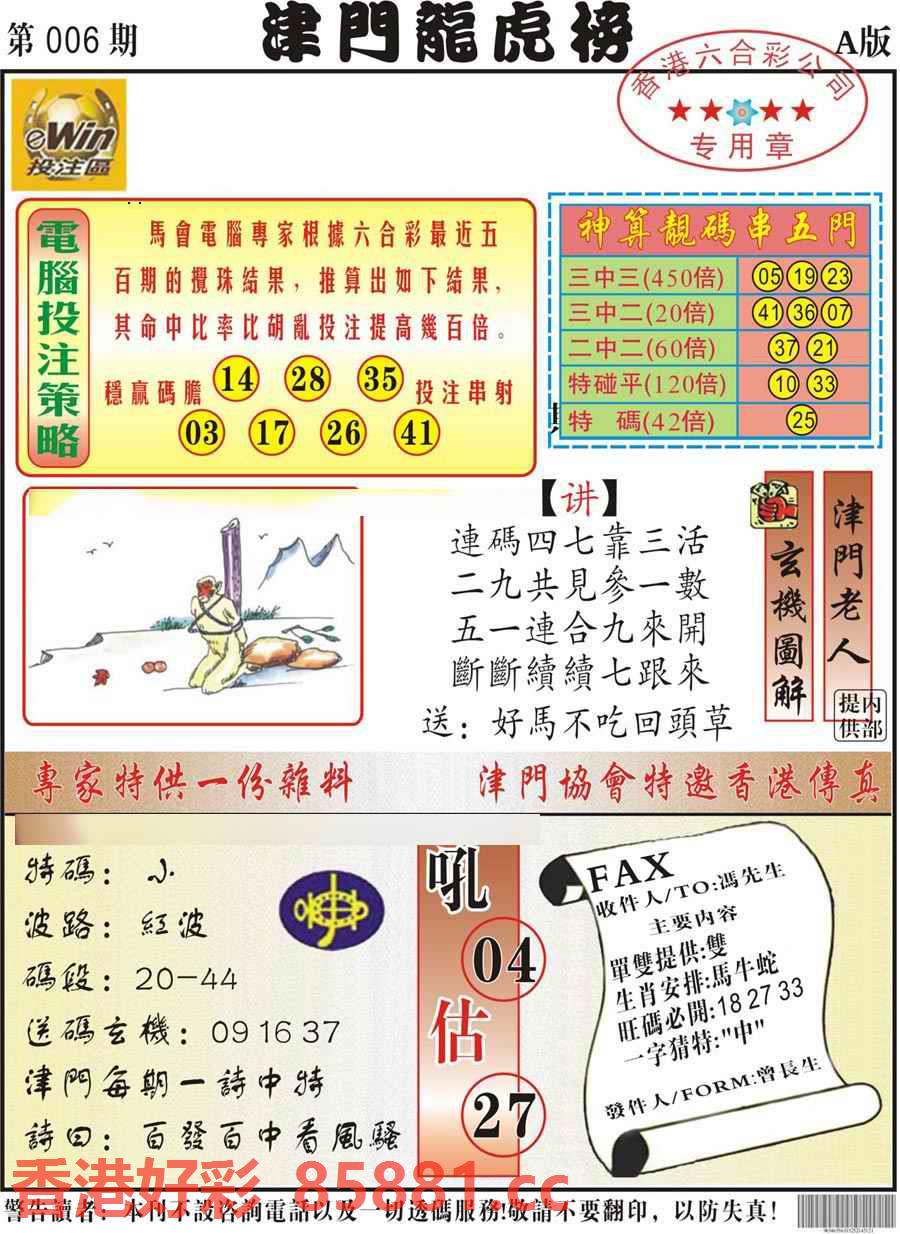 第 006 期
津門龍虎榜
A版
香港六合彩公司
专用章
eWin
投注區
電腦投注策略
馬會電腦專家根據六合彩最近五
百期的攪珠結果，推算出如下結果，
其命中比率比胡亂投注提高幾百倍。
穩贏碼膽 14 28 35 投注串射
03 17 26 41
神算靚碼串五門
三中三(450倍) 05 19 23
三中二(20倍) 41 36 07
二中二(60倍) 37 21
特碰平(120倍) 10 33
特 碼(42倍) 25
【讲】
連碼四七靠三活
二九共見參一數
五一連合九來開
斷斷續續七跟來
送：好馬不吃回頭草
玄機圖解
津門老人
内部提供
專家特供一份雜料
津門協會特邀香港傳真
特碼：小
波路：紅波
碼段：20-44
送碼玄機：09 16 37
津門每期一詩中特
詩曰：百發百中看風騷
吼
04
估
27
FAX
收件人/TO:馮先生
主要内容
單雙提供:雙
生肖安排:馬牛蛇
旺碼必開:18 27 33
一字猜特:"中"
發件人/FORM:曾長生
香港好彩 85881.cc
警告讀者：本刊不設咨詢電話以及一切透碼服務!敬請不要翻印，以防失真!